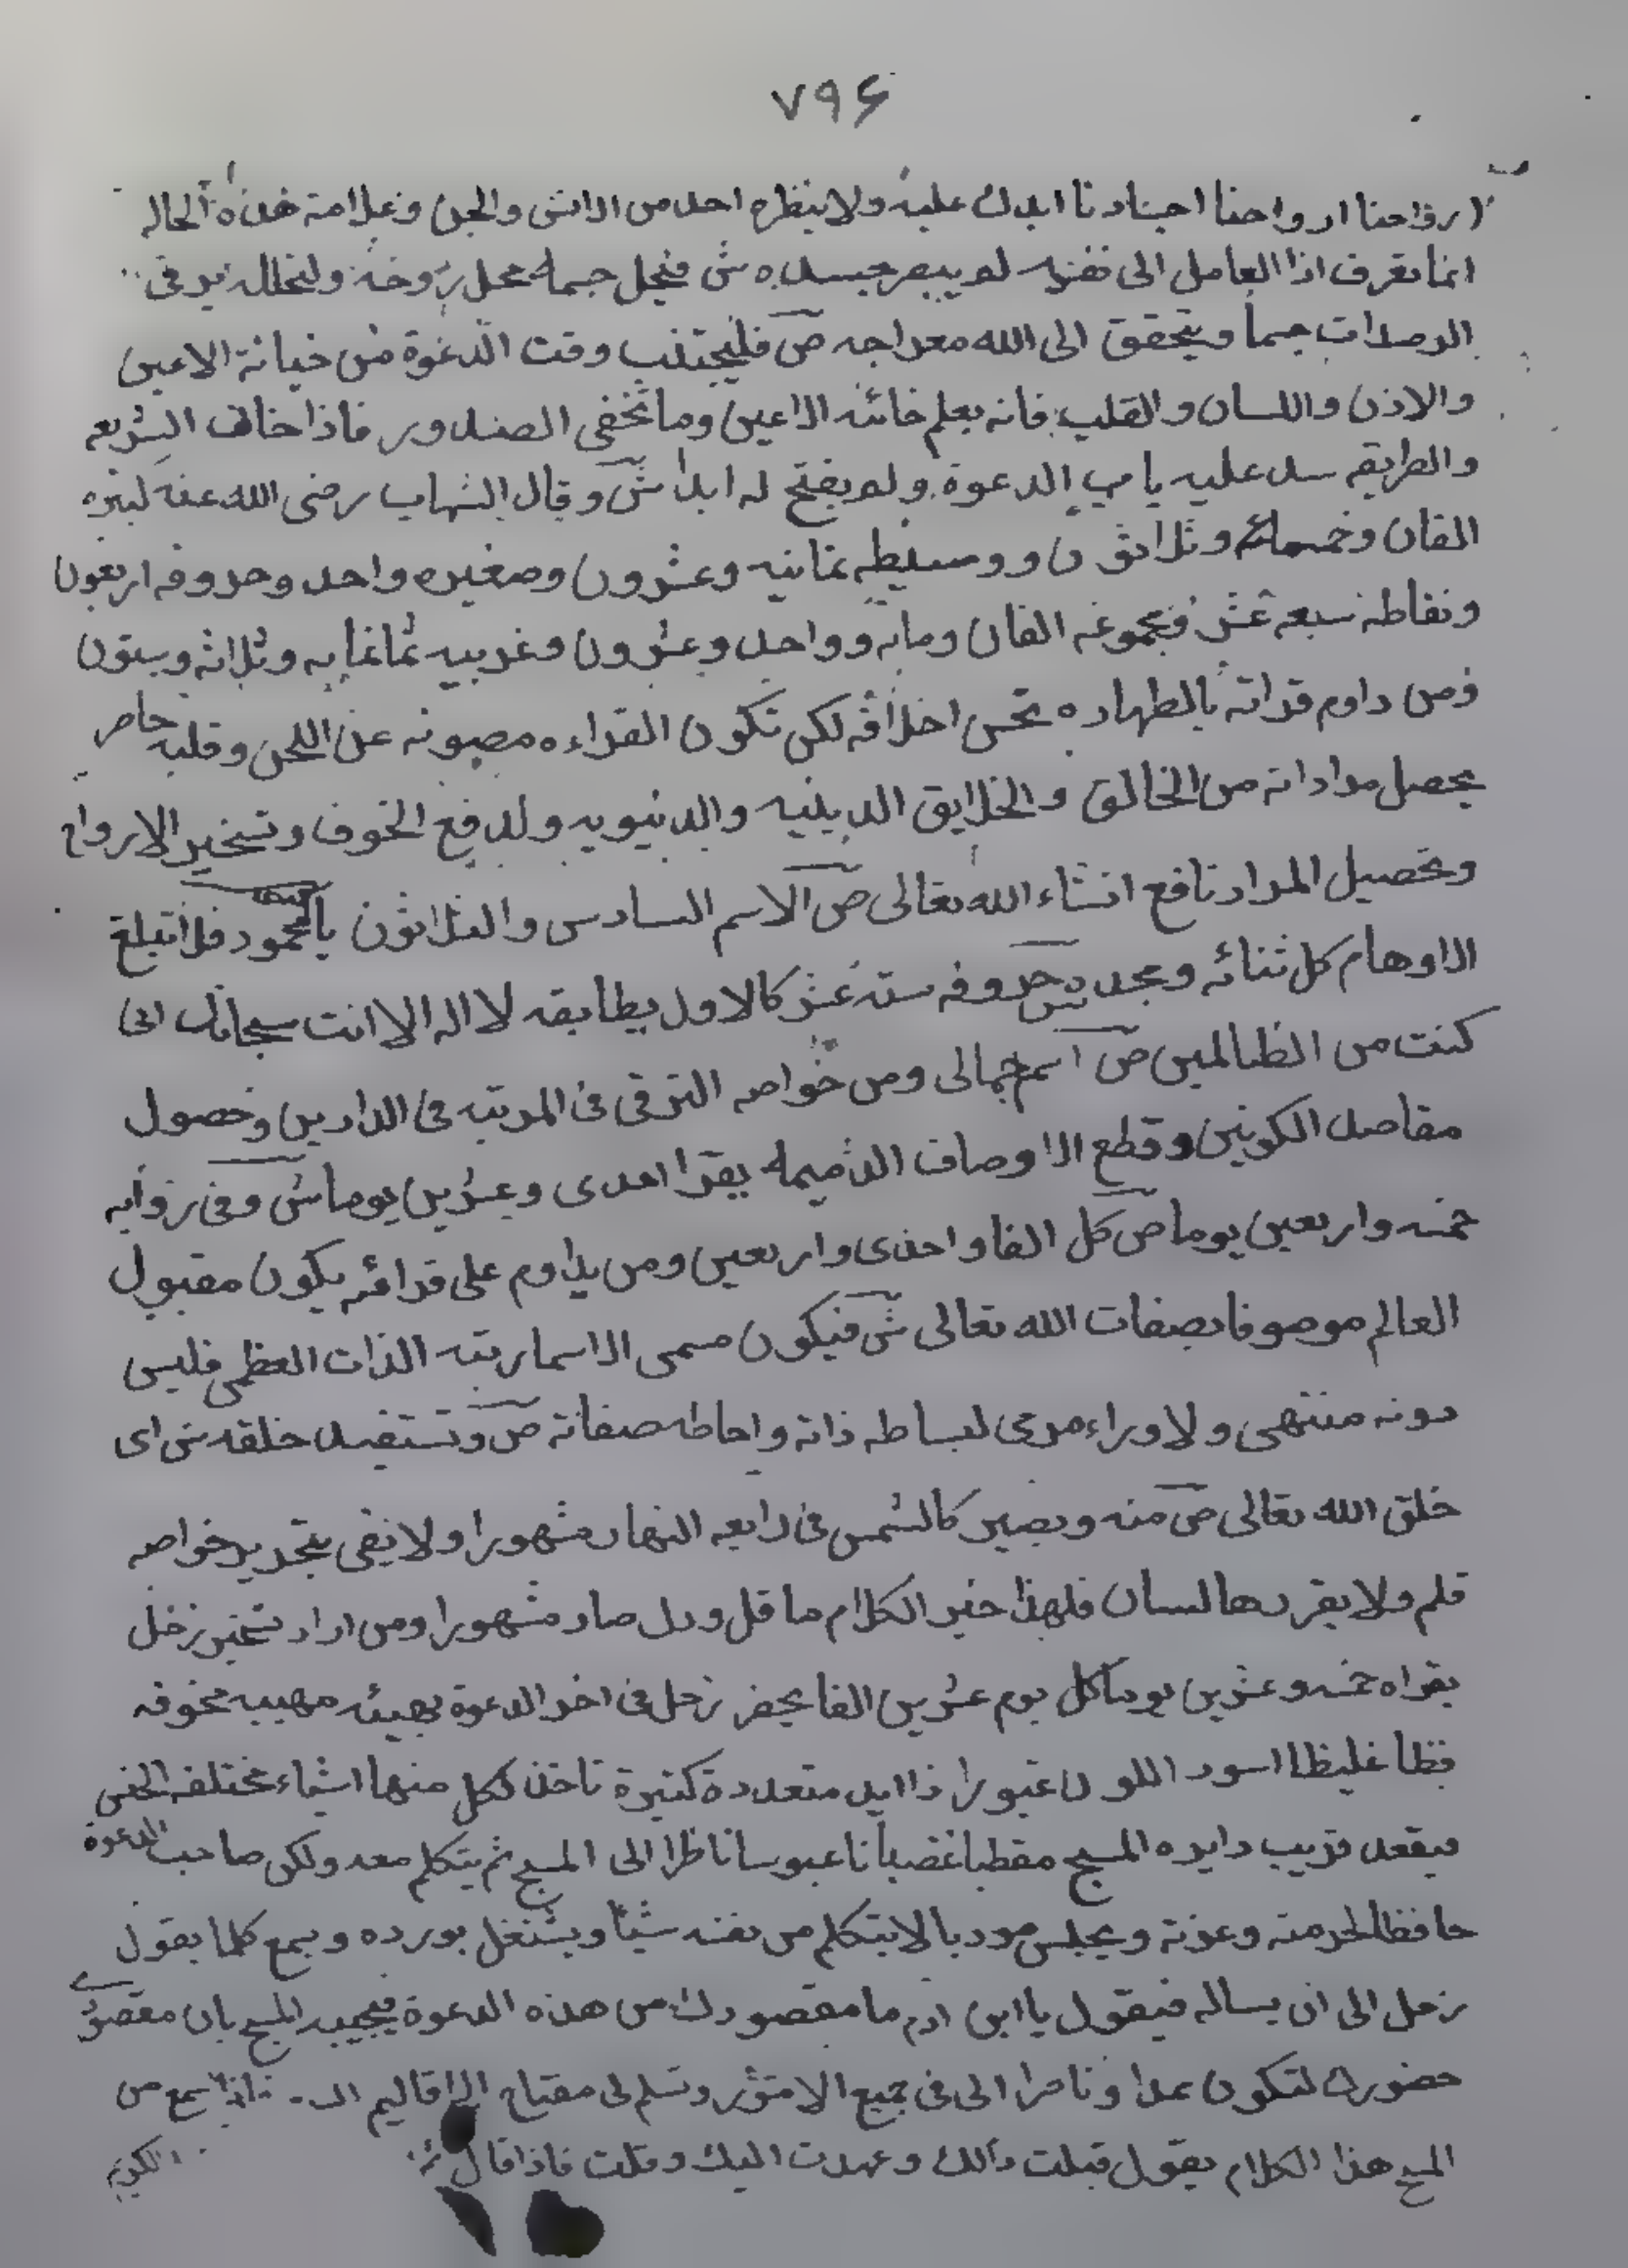 ٧٩۶
ارواحنا اجسادنا ابدك عليه ولا ينظره احد من الانس والجن وعلامة هذه الحاله
انما تعرف اذا العامل الى نفسه لم يبصر جسده ش فيجعل جسمه محل روحه
جسما ويتحقق الى الله معراجه ص فليجتنب وقت الدعوة من خيانة الاعين
والاذن واللسان والقلب فانه يعلم خائنه الاعين وما تخفى الصدور فاذا خالف الشريعه
والطريقه سد عليه باب الدعوة ولم يفتح له ابدا ش وقال الشهاب رضى الله عنه كبيره
الفان وخمسمائه وثلاثون ووسيطه ثمانيه وعشرون وصغيره واحد وحروفه اربعون
ونقاطه سبعه عشر فمجموعه الفان ومانه وواحد وعشرون وغريبيه ثمانمايه وثلاثه وستون
فمن داوم قراته بالطهاره تحسن اخلاقه لكى تكون القراءه مصونه عن اللحن وقلبه حاضر
يحصل مراداته من الخالق والخلايق الدينيه والدنيويه ولدفع الخوف وتسخير الارواح
وتحصيل المراد نافع انشاء الله تعالى ص الاسم السادس والثلاثون يا محمود فلا تبلغ
الاوهام كل ثنائه ومجده ش حروفه سته عشر كالاول يطابقه لا اله الا انت سبحانك انى
كنت من الظالمين ص اسم جمالى ومن خواصه الترقى فى المرتبه فى الدارين وحصول
مقاصد الكونين وقطع الاوصاف الذميمه يقرا احدى وعشرين يوما ش وفى روايه
خمسه واربعين يوما ص كل الفا واحدى واربعين ومن يداوم على قرائته يكون مقبول
العالم موصوفا بصفات الله تعالى ش فيكون مسمى الاسما رتبه الذات العظمى فليس
دونه منتهى ولا وراء مرمى لبساطه ذاته واحاطه صفاته ص وتستفيد خلقه ش اى
خلق الله تعالى ص منه ويصير كالشمس فى رابعه النهار مشهورا ولا يفى بتحرير خواصه
قلم ولا يقررها لسان فلهذا خير الكلام ما قل ودل صار مشهورا ومن اراد تسخير زحل
يقراه خمسه وعشرين يوما كل يوم عشرين الفا يحضر زحل فى اخر الدعوة بهيئه مهيبه مخوفه
فظا غليظا اسود اللون عبوسا ذا ايد متعددة كثيرة تاخذ كل منها اشياء مختلفه الجنس
فيقعد قريب دايره المسبح مقطبا غضبانا عبوسا ناظرا الى المسبح ثم يتكلم معه ولكن صاحب الدعوة
حافظا لحرمته وعزته ويجلس مودبا لا يتكلم من نفسه شيئا ويشتغل بورده ويسمع كلما يقول
زحل الى ان يساله فيقول يا ابن ادم ما مقصودك من هذه الدعوة فيجيبه المسبح بان مقصودى
حضورك لتكون ممدا وناصرا لى فى جميع الامور وتسلم لى مفتاح الاقاليم فاذا سمع من
المسبح هذا الكلام يقول قبلت ذالك وعهدت اليك وقلت فاذا قال